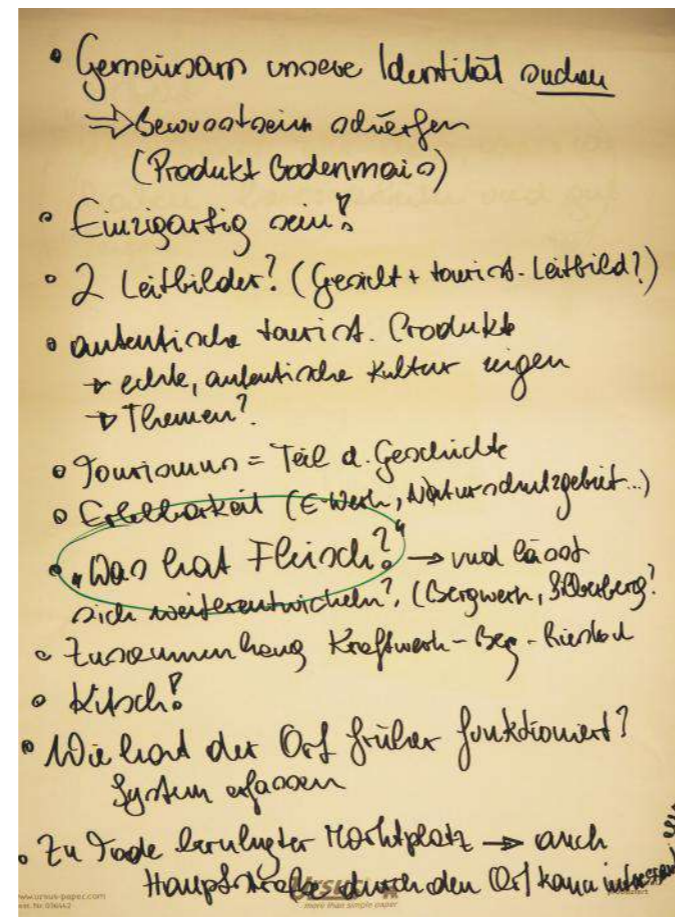 • Gemeinsam unsere Identität suchen
⇒ Bewusstsein schärfen
(Produkt Bodenmais)
• Einzigartig sein?!
• 2 Leitbilder? (Gesicht + tourist. Leitbild?)
• autentische tourist. Produkte
→ echte, autentische Kultur zeigen
→ Themen?
• Tourismus = Teil d. Geschichte
• Erlebbarkeit (E-Werk, Naturschutzgebiet...)
• "Was hat Fleisch?!" → und lässt
sich weiterentwickeln?, (Bergwerk, Silberberg?
• Zusammenhang Kraftwerk - Berg -
• Kitsch?!
• Wie hat der Ort früher funktioniert?
System erfassen
• Zu Tode beruhigter Marktplatz → auch
Hauptstraße durch den Ort kann
www.ursus-paper.com
more than simple paper